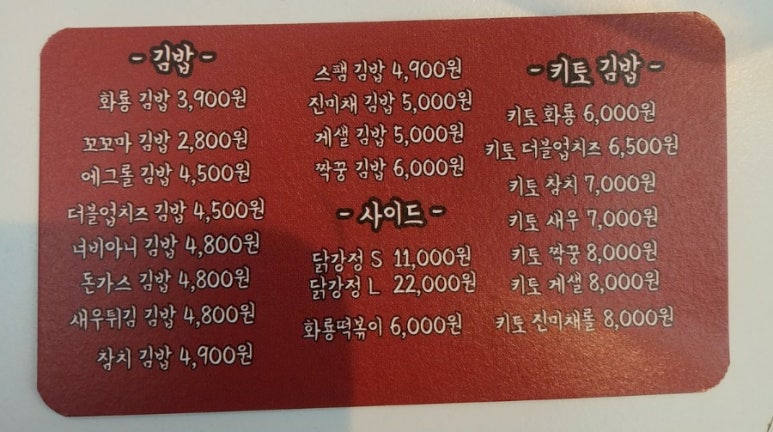 - 김밥 -
화룡 김밥 3,900원
꼬꼬마 김밥 2,800원
에그롤 김밥 4,500원
더블업치즈 김밥 4,500원
너비아니 김밥 4,800원
돈가스 김밥 4,800원
새우튀김 김밥 4,800원
참치 김밥 4,900원
스팸 김밥 4,900원
진미채 김밥 5,000원
게샐 김밥 5,000원
짝꿍 김밥 6,000원
- 사이드 -
닭강정 S 11,000원
닭강정 L 22,000원
화룡떡볶이 6,000원
- 키토 김밥 -
키토 화룡 6,000원
키토 더블업치즈 6,500원
키토 참치 7,000원
키토 새우 7,000원
키토 짝꿍 8,000원
키토 게샐 8,000원
키토 진미채롤 8,000원